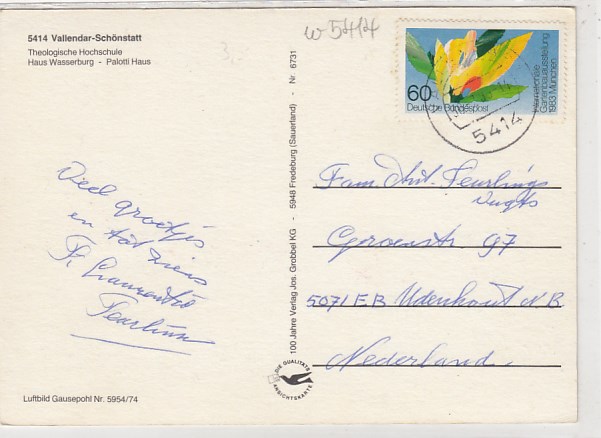 5414 Vallendar-Schönstatt
Theologische Hochschule
Haus Wasserburg - Palotti Haus
w 5414
60
Deutsche Bundespost
Internationale
Gartenbauausstellung
1983 München
5414
100 Jahre Verlag Jos. Grobbel KG - 5948 Fredeburg (Sauerland) - Nr. 6731
Veel groetjes
en tot ziens
Fr.
Fam. Ant. Teurlings
Vugts
Groenstr. 97
5071 EB Udenhout N.B.
Nederland.
DIE QUALITÄTS
ANSICHTSKARTE
Luftbild Gausepohl Nr. 5954/74